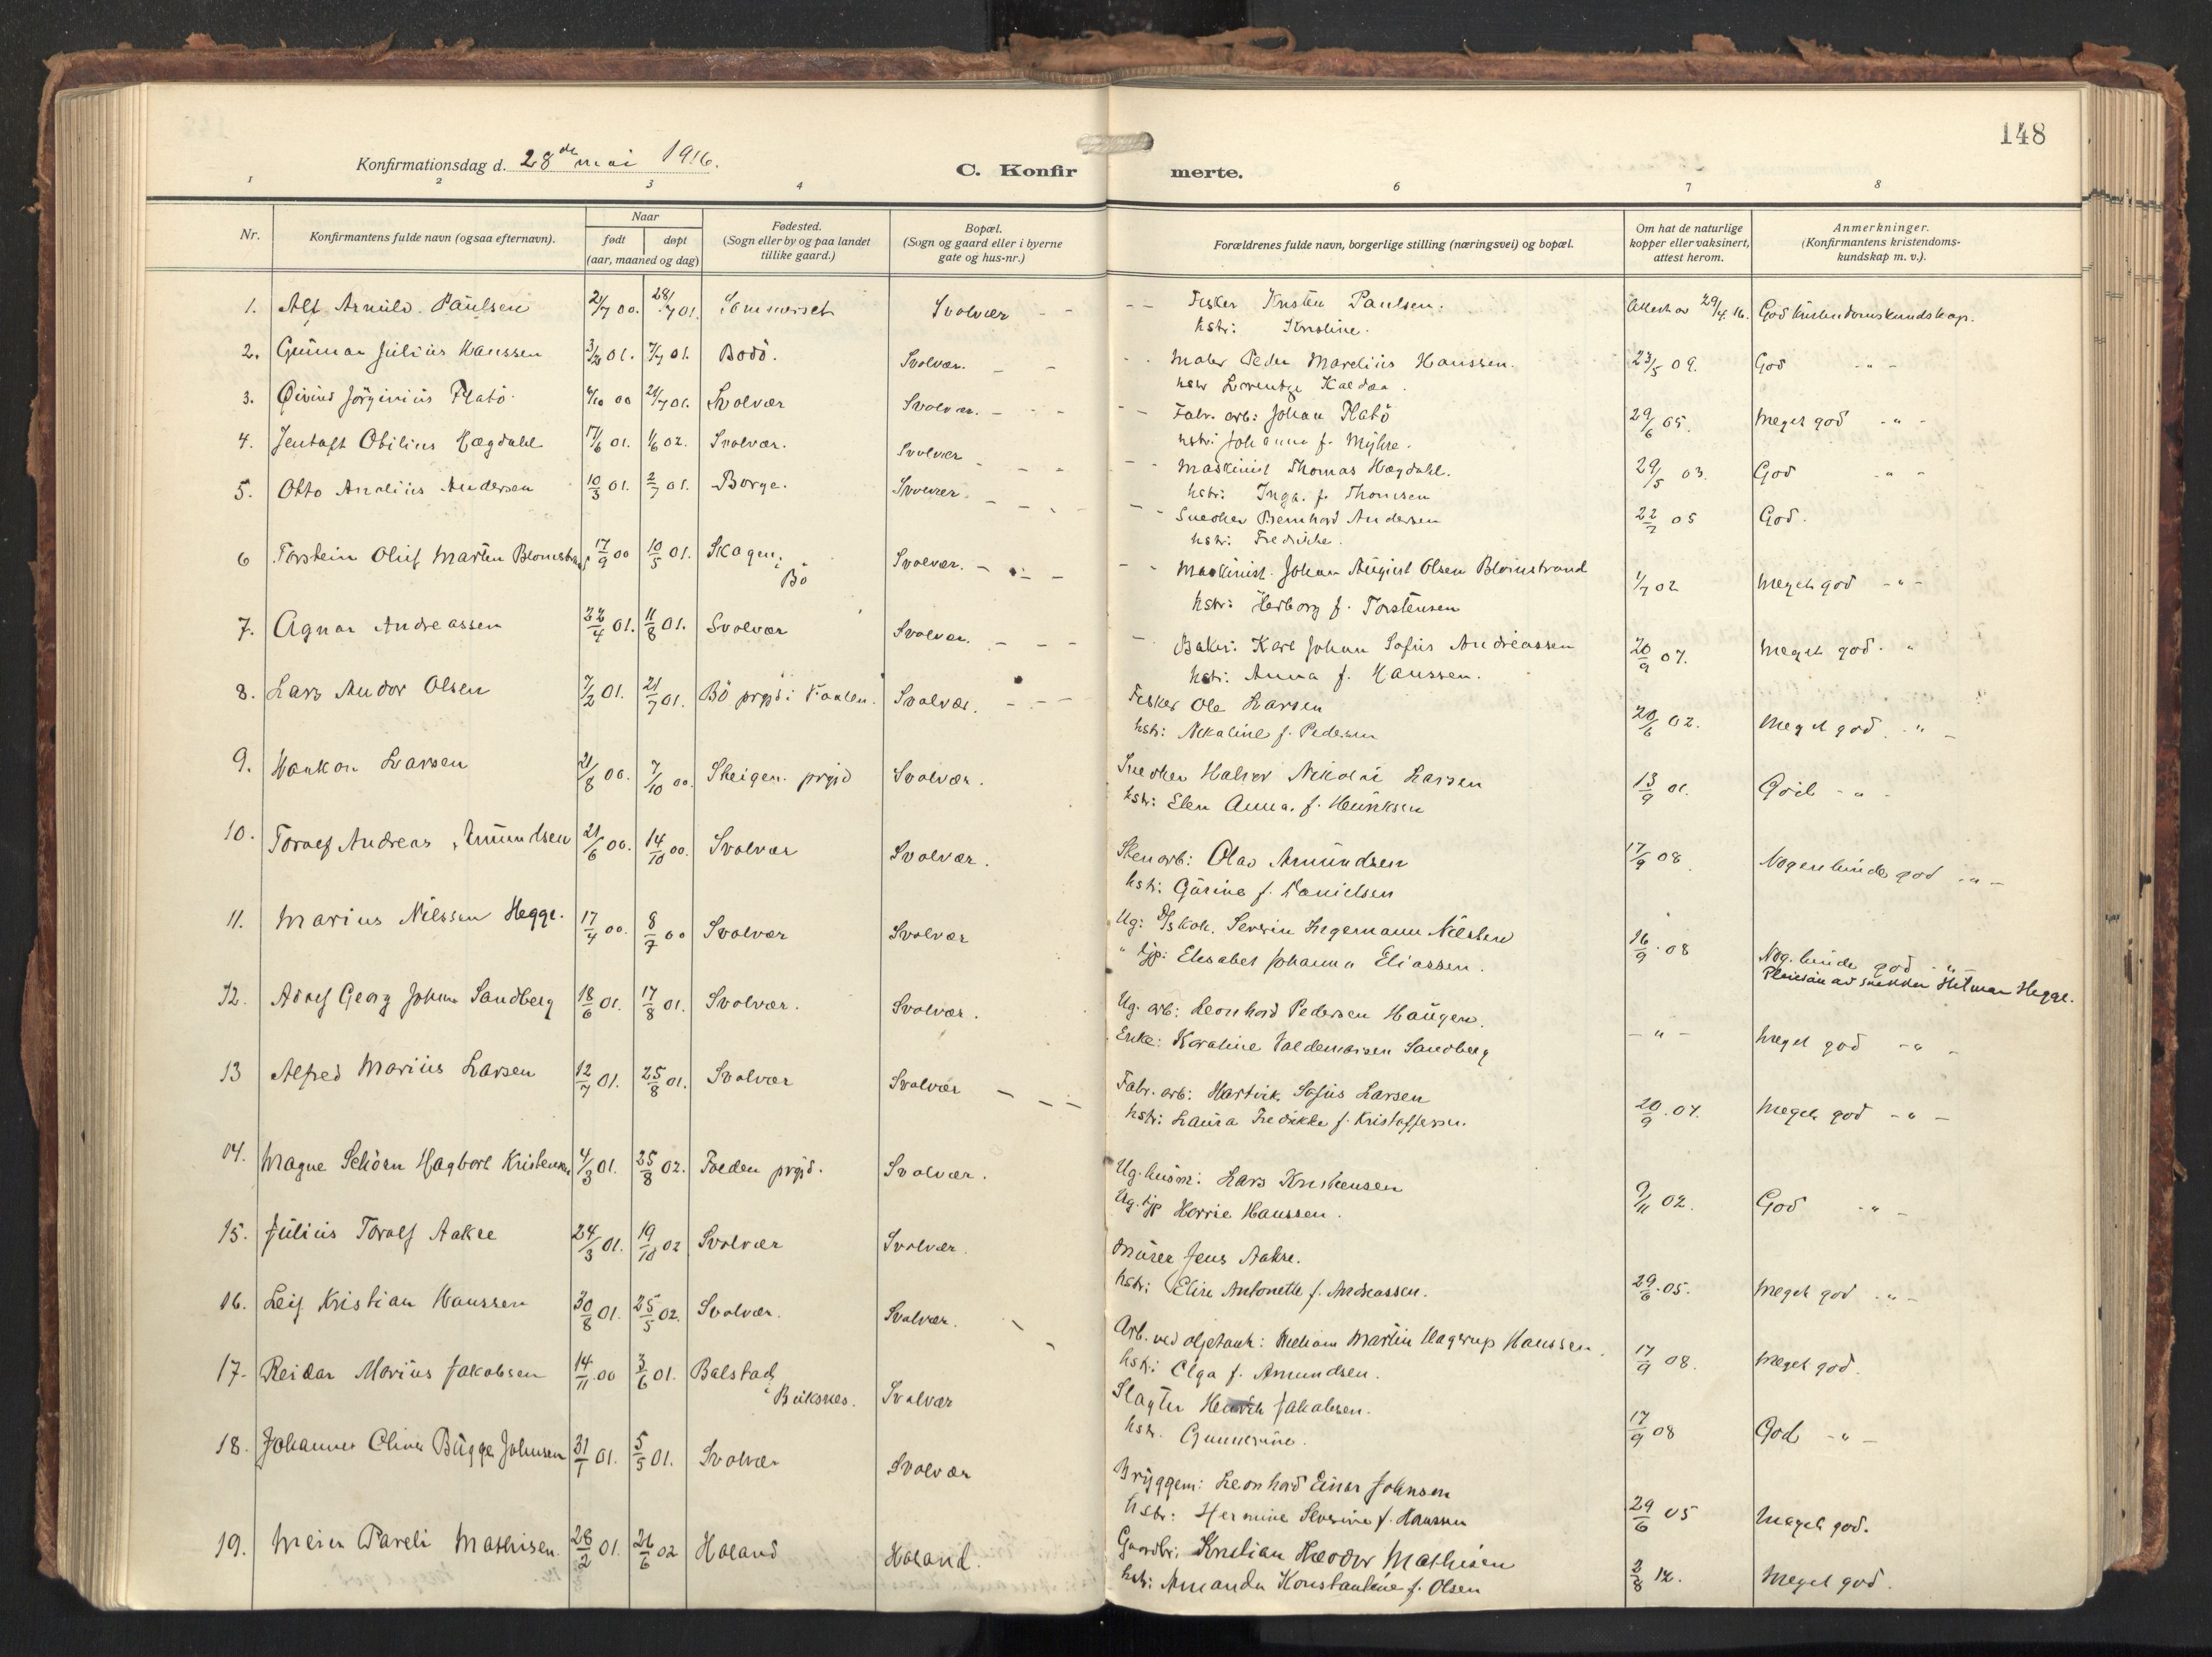 148
Konfirmationsdag d. 28de mai 1916.
C. Konfirmerte.
1 2 3 4 6 7 8
Nr.
Konfirmantens fulde navn (ogsaa efternavn).
Naar
født
døpt
(aar, maaned og dag)
Fødested.
(Sogn eller by og paa landet
tillike gaard.)
Bopæl.
(Sogn og gaard eller i byerne
gate og hus-nr.)
Forældrenes fulde navn, borgerlige stilling (næringsvei) og bopæl.
Om hat de naturlige
kopper eller vaksinert,
attest herom.
Anmerkninger.
(Konfirmantens kristendoms-
kundskap m. v.).
1. Alf Arnuld Paulsen 2/7 00. 28/7 01. Sommerset Svolvær - - - - Fisker Kristen Paulsen. Attest av 29/4 16. God kristendomskundskap.
hstr: Kristine.
2. Gunnar Julius Hanssen 3/3 01. 7/7 01. Bodö. Svolvær. - - - - Maler Peder Marelius Hanssen. 23/5 09. God - " -
hstr Lorentze Kaldaa.
3. Øivind Jörginius Flatö 6/10 00 21/7 01. Svolvær Svolvær. - - - - - Fabr. arb: Johan Flatö 29/6 05. Meget god - " -
hstr: Johanna f. Myhre.
4. Jentoft Obilius Hægdahl 17/6 01. 1/6 02. Svolvær. Svolvær - - - - - Maskinist Thomas Hægdahl. 29/5 03. God - " -
hstr: Inga f. Thomsen
5. Otto Analius Andersen 10/3 01. 2/7 01. Borge. Svolvær. - - - - - Snedker Bernhard Andersen 22/7 05 God.
hstr: Fredrikke.
6 Torstein Oluf Martin Blomstrand 17/9 00 10/5 01. Skagen i Svolvær. - - - - - Maskinist Johan August Olsen Blomstrand 1/7 02 Meget god - " -
Bö
hstr: Herborg f. Torstensen
7. Agnar Andreassen 22/4 01. 11/8 01. Svolvær Svolvær. - - - - Baker: Karl Johan Sofus Andreassen 20/9 07. Meget god. "
hstr: Anna f. Hanssen.
8. Lars Andor Olsen 7/2 01. 21/7 01. Bö prgjd i Vaalen. Svolvær. - - - Fisker Ole Larsen 20/6 02. Meget god. - " -
hstr: Nekoline f. Pedersen
9. Haakon Larsen 21/8 00. 7/10 00. Steigen prgjd Svolvær. Snedker Halvor Nikolai Larsen 13/9 01. God - " -
hstr: Elen Anna f. Henriksen
10. Toralf Andreas Amundsen 21/6 00. 14/10 00. Svolvær Svolvær. Stenarb: Olav Amundsen 17/9 08 Nogenlunde god - " -
hstr: Gurine f. Danielsen
11. Marius Nilssen Hegge. 17/4 00. 8/7 00 Svolvær Svolvær Ug: D/Skoh. Severin Hegermann Nilssen 16/9 08 Nog. lunde god - " -
" tjp: Elisabet Johanna Eliassen. Pleiesön av snekker Hilmar Hegge.
12. Adolf Georg Johan Sandberg 18/6 01. 17/8 01. Svolvær. Svolvær. Ug. arb: Leonhard Pedersen Haugen. - " - Meget god - " -
Enke: Karoline Valdemarsen Sandberg
13 Alfred Marius Larsen 12/7 01. 25/8 01. Svolvær Svolvær - - - Fabr. arb: Hartvik Sofus Larsen 20/9 07. Meget god - " -
hstr: Laura Fredrikke f. Kristoffersen.
14. Magne Schöen Hagbart Kristensen 4/3 01. 25/8 02. Folden prgjd. Svolvær. Ug. husm: Lars Kristensen 9/11 02. God - " -
Ug. tjp Harrie Hanssen.
15. Julius Toralf Aakre 24/3 01. 19/10 02 Svolvær Svolvær. Murer Jens Aakre. 29/6 05. Meget god - " -
hstr: Elise Antonette f. Andreassen.
16. Leif Kristian Hanssen 30/8 01. 25/5 02. Svolvær. Svolvær. - - Arb. ved oljetank: William Martin Hagerup Hanssen. 17/9 08. Meget god.
hstr: Olga f. Amundsen.
17. Reidar Marius Jakobsen 14/11 00 3/6 01. Balstad Svolvær Slagter Henrik Jakobsen. 17/9 08 God - " -
i Buksnes.
hstr. Gunnerine.
18. Johannes Oliver Bugge Johnsen 31/1 01. 5/5 01. Svolvær Svolvær Bryggem: Leonhard Einar Johnsen 29/6 05 Meget god.
hstr: Hermine Severine f. Hanssen
19. Meier Pareli Mathisen 28/2 01. 26/6 02 Holand Holand. Gaardbr: Kristian Hærder Mathisen 2/8 12. Meget god.
hstr: Amanda Konstantine f. Olsen